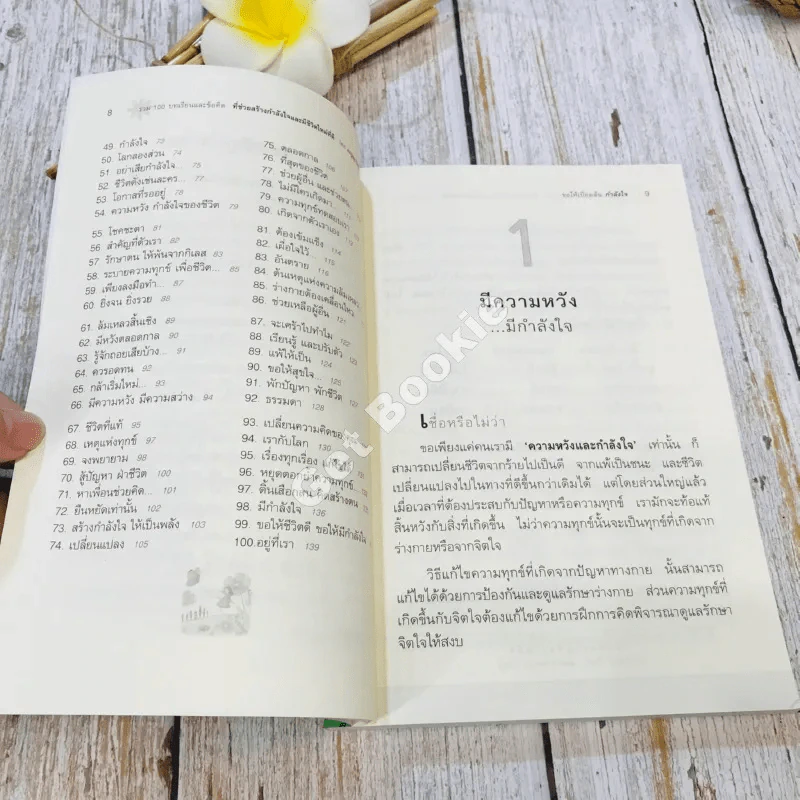 8 รวม 100 บทเรียนและข้อคิด ที่ช่วยสร้างกำลังใจและมีชีวิตใหม่ที่ดี
49. กำลังใจ 73
50. โลกสองส่วน 74
51. อย่าเสียกำลังใจ... 75
52. ชีวิตดั่งเช่นละคร... 77
53. โอกาสที่รออยู่ 78
54. ความหวัง กำลังใจของชีวิต 79
55. โชคชะตา 81
56. สำคัญที่ตัวเรา 82
57. รักษาตน ให้พ้นจากกิเลส 83
58. ระบายความทุกข์ เพื่อชีวิต... 85
59. เพียงลงมือทำ... 87
60. ยิ่งจน ยิ่งรวย 88
61. ล้มเหลวสิ้นเชิง 89
62. มีหวังตลอดกาล 90
63. รู้จักถอยเสียบ้าง... 91
64. ควรอดทน 92
65. กล้าเริ่มใหม่... 93
66. มีความหวัง มีความสว่าง 94
67. ชีวิตที่แท้ 95
68. เหตุแห่งทุกข์ 97
69. จงพยายาม 98
70. สู้ปัญหา ฝ่าชีวิต 100
71. หาเพื่อนช่วยคิด... 101
72. ยืนหยัดเท่านั้น 102
73. สร้างกำลังใจ ให้เป็นพลัง 103
74. เปลี่ยนแปลง 105
75. ตลอดกาล 106
76. ที่สุดของชีวิต
77. ช่วยผู้อื่น และช่วยตน
78. ไม่มีใครเกิดมา...
79. ความทุกข์ทดสอบเรา
80. เกิดจากตัวเราเอง
81. ต้องเข้มแข็ง 114
82. เผื่อใจไว้... 115
83. อันตราย 116
84. ต้นเหตุแห่งความล้มเหลว
85. ร่างกายต้องเคลื่อนไหว
86. ช่วยเหลือผู้อื่น 121
87. จะเศร้าไปทำไม 122
88. เรียนรู้ และปรับตัว 123
89. แพ้ให้เป็น 124
90. ขอให้สุขใจ 125
91. พักปัญหา พักชีวิต
92. ธรรมดา 128
93. เปลี่ยนความคิดของ
94. เรากับโลก 130
95. เรื่องทุกเรื่อง
96. หยุดตอกย้ำ
97. ตื้นเสือ
98. มีกำลังใจ 136
99. ขอให้ชีวิตดี ขอให้มีกำลังใจ
100. อยู่ที่เรา 139
ขอให้เปี่ยมล้น กำลังใจ 9
1
มีความหวัง
...มีกำลังใจ
เชื่อหรือไม่ว่า
ขอเพียงแค่คนเรามี 'ความหวังและกำลังใจ' เท่านั้น ก็
สามารถเปลี่ยนชีวิตจากร้ายไปเป็นดี จากแพ้เป็นชนะ และชีวิต
เปลี่ยนแปลงไปในทางที่ดีขึ้นกว่าเดิมได้ แต่โดยส่วนใหญ่แล้ว
เมื่อเวลาที่ต้องประสบกับปัญหาหรือความทุกข์ เรามักจะท้อแท้
สิ้นหวังกับสิ่งที่เกิดขึ้น ไม่ว่าความทุกข์นั้นจะเป็นทุกข์ที่เกิดจาก
ร่างกายหรือจากจิตใจ
วิธีแก้ไขความทุกข์ที่เกิดจากปัญหาทางกาย นั้นสามารถ
แก้ไขได้ด้วยการป้องกันและดูแลรักษาร่างกาย ส่วนความทุกข์ที่
เกิดขึ้นกับจิตใจต้องแก้ไขด้วยการฝึกการคิดพิจารณาดูแลรักษา
จิตใจให้สงบ
Get Bookie